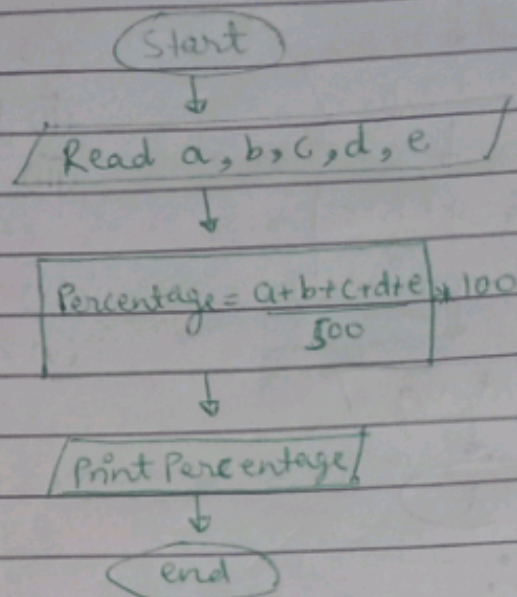 Start
Read a, b, c, d, e
Percentage = a+b+c+d+e * 100
500
Print Percentage
end